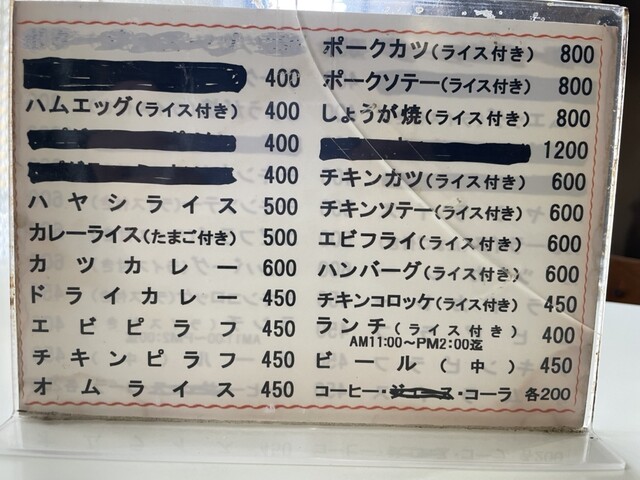 400
ハムエッグ(ライス付き) 400
400
400
ハヤシライス 500
カレーライス(たまご付き) 500
カツカレー 600
ドライカレー 450
エビピラフ 450
チキンピラフ 450
オムライス 450
ポークカツ(ライス付き) 800
ポークソテー(ライス付き) 800
しょうが焼(ライス付き) 800
1200
チキンカツ(ライス付き) 600
チキンソテー(ライス付き) 600
エビフライ(ライス付き) 600
ハンバーグ(ライス付き) 600
チキンコロッケ(ライス付き) 450
ランチ(ライス付き) 400
AM11:00~PM2:00迄
ビール(中) 450
コーヒー・ジュース・コーラ 各200